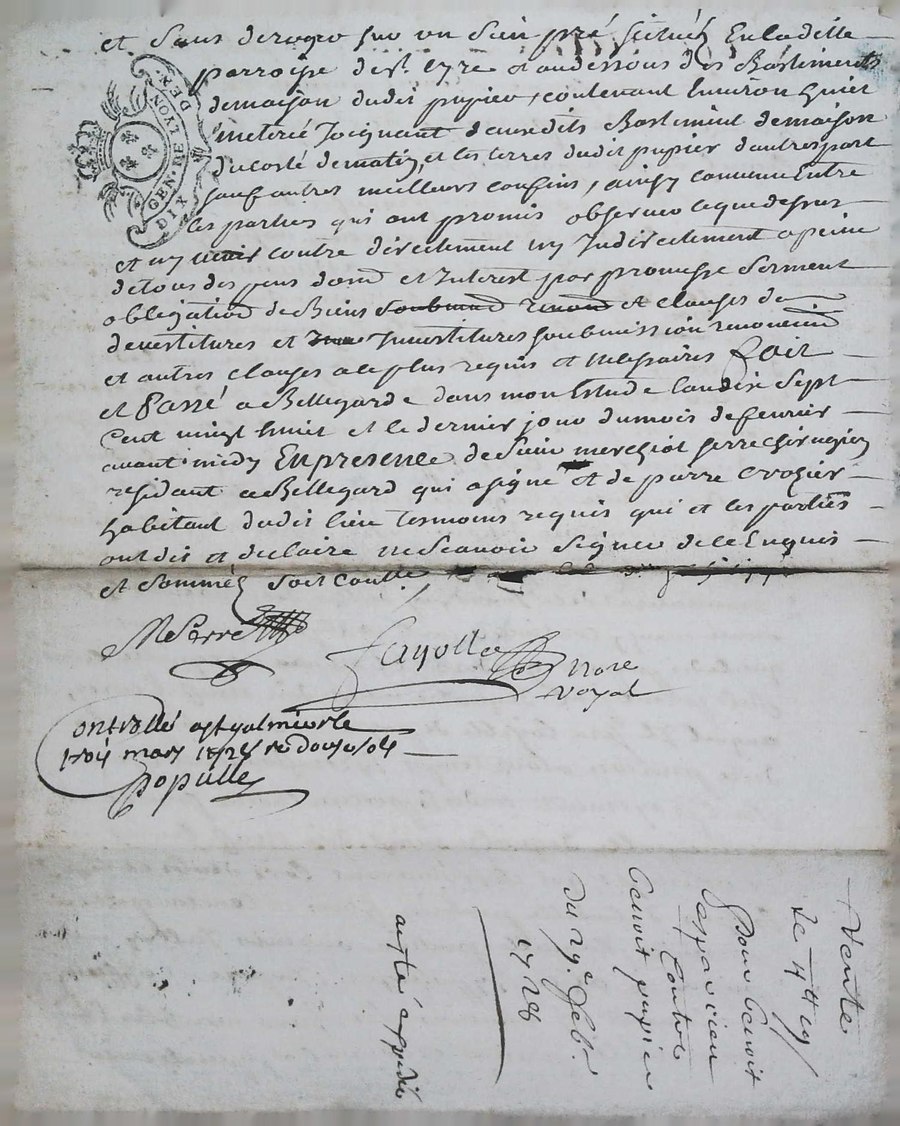 et sans deroger sur un sien pré scitué En laditte
parroisse de st. cyre et audessous des Bastiments
de maison dudit pupier, contenant Environ huict
meterée Joignant deusdits Bastiment de maison
du costé de matin, et les terres dudit pupier d'autres part
sauf autres meilleurs confins, ainsy convenu Entre
les parties qui ont promis observer ceque dessus
et ny venir contre directement ny Indirectement apeine
de tous despens dom et Interest par promesse serment
obligation de Biens et clauses de
devestitures et Investitures soubmission renonciaon
et autres clauses ace plus requis et necessaires fait
et Passé a Bellegarde dans mon Estude L'an dixe sept
Cent vingt huict et le dernier jour du mois de feuvrier
avant midy En presence de sieur merchiot serre chirugien
residant a Bellegard qui a signé et de pierre crozier
habitant dudit lieu tesmoins requis qui et les parties
ont dit et declaire ne scavoir signer de ce Enquis
et sommés soit Contlle
M Serre
fayolle
Nore
royal
Controllé a st galmier le
trois mars 1728 re douze s
populle
DIX DEN. GEN. DE LYON.
Vente
de
pour benoit
contre
benoit pupier
du 29e feb.r
1728
acte expedié